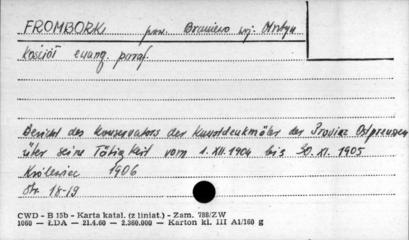 FROMBORK pow. Braniewo woj. Olsztyn
kościół ewang. paraf.
Bericht des Konservators der Kunstdenkmäler der Provinz Ostpreussen
über seine Tätigkeit vom 1. XII. 1904 bis 30. XI. 1905
Królewiec 1906
Str. 18-19
CWD - B 15b - Karta katal. (z liniat.) - Zam. 788/ZW
1060 — ŁDA — 21.4.60 — 2.360.000 — Karton kl. III A1/160 g